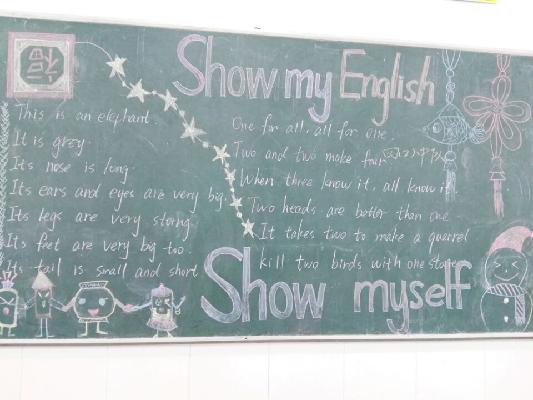 福
Show my English
This is an elephant
It is grey
Its nose is long
Its ears and eyes are very big.
Its legs are very storng.
Its feet are very big too.
Its tail is small and short
One for all, all for one
Two and two make four
When three know it, all know it
Two heads are better than one
It takes two to make a quarrel
kill two birds with one stone
Show myself